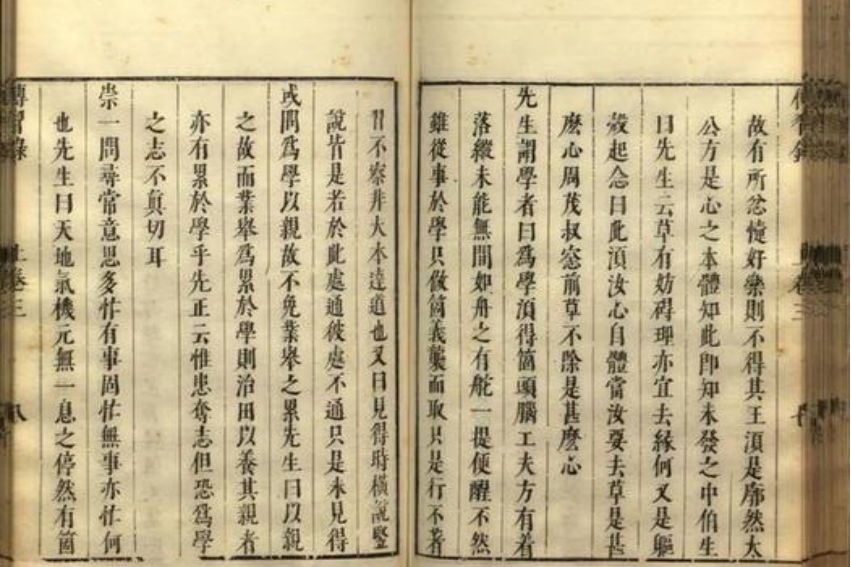 故有所忿懥好樂則不得其正須是廓然大
公方是心之本體知此卽知未發之中伯生
曰先生云草有妨碍理亦宜去緣何又是軀
殼起念曰此須汝心自體當汝要去草是甚
麽心周茂叔窓前草不除是甚麽心
先生謂學者曰爲學湏得箇頭腦工夫方有着
落縱未能無間如舟之有舵一提便醒不然
雖從事於學只做箇義襲而取只是行不著
習不察非大本達道也又曰見得時橫說竪
說皆是若於此處通彼處不通只是未見得
或問爲學以親故不免業舉之累先生曰以親
之故而業舉爲累於學則治田以養其親者
亦有累於學乎先正云惟患奪志但恐爲學
之志不眞切耳
崇一問尋常意思多忙有事固忙無事亦忙何
也先生曰天地氣機元無一息之停然有箇
傳習錄
上卷三
八